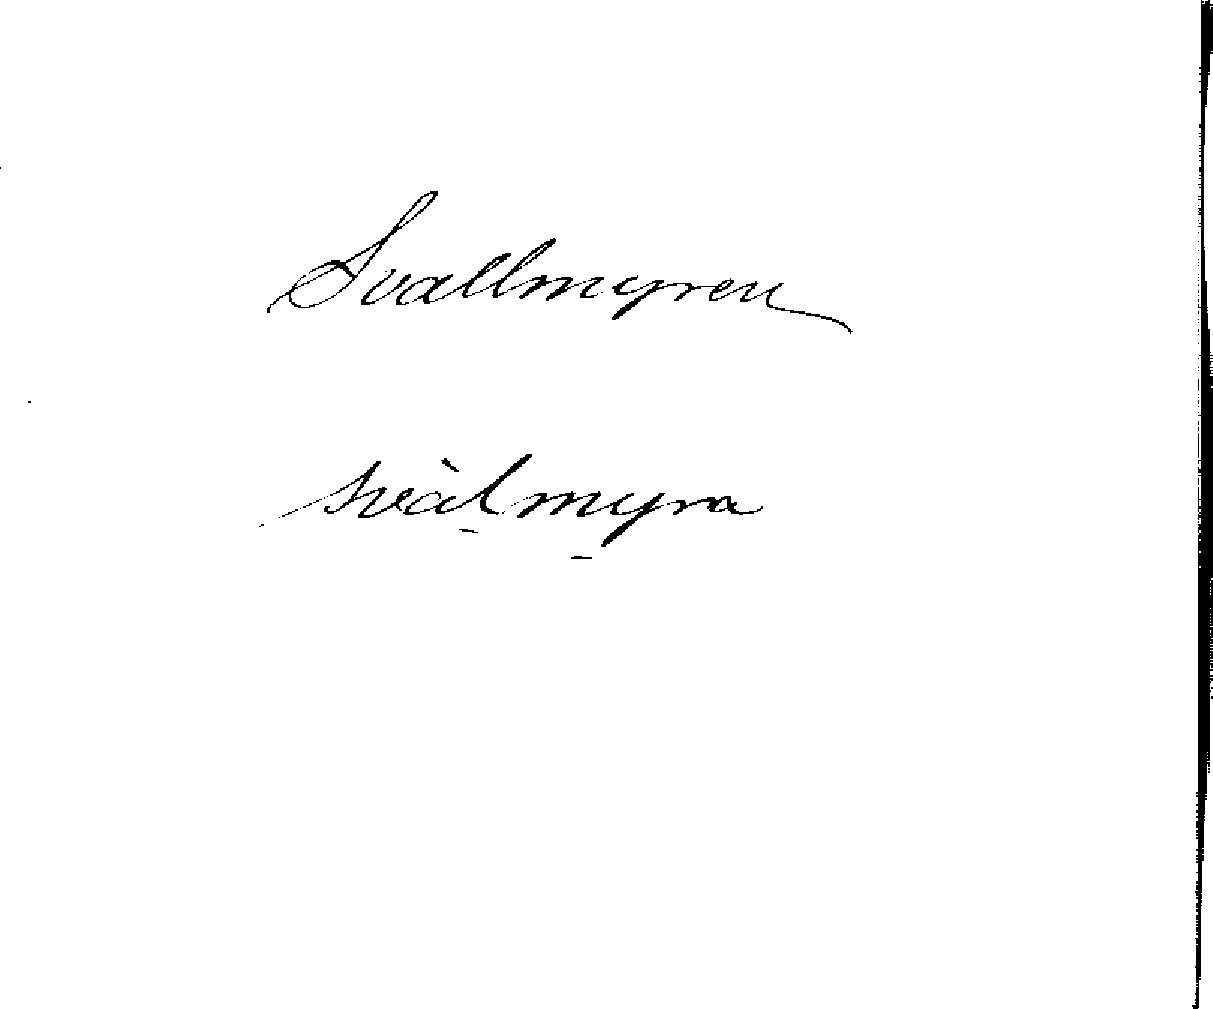 Svallmyren
svàlmyra